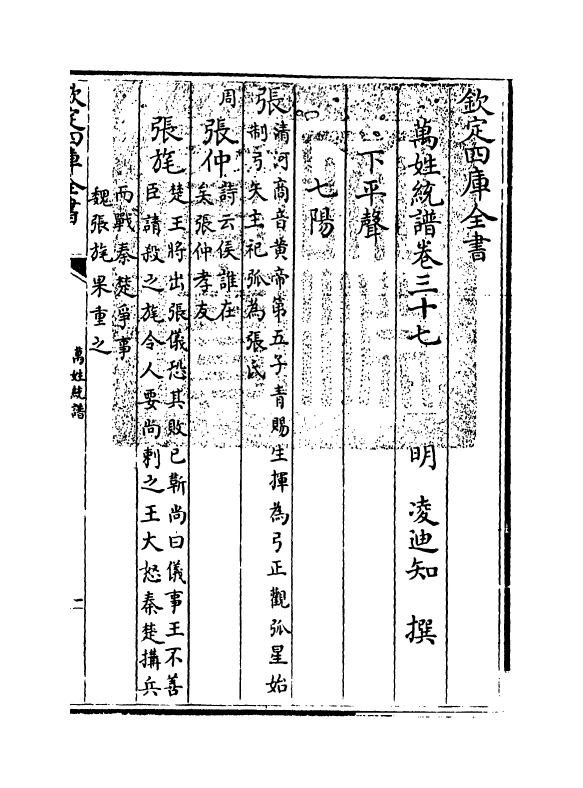 欽定四庫全書
萬姓統譜卷三十七 明 凌迪知 撰
下平聲
七陽
張 清河商音黄帝第五子青賜生揮為弓正觀弧星始
制弓矢主祀弧為張氏
周
張仲 詩云侯誰在
矣張仲孝友
張旄 楚王將出張儀恐其敗已靳尚曰儀事王不善
臣請殺之旄令人要尚刺之王大怒秦楚搆兵
而戰秦楚爭事
魏張旄果重之
欽定四庫全書
萬姓統譜
二